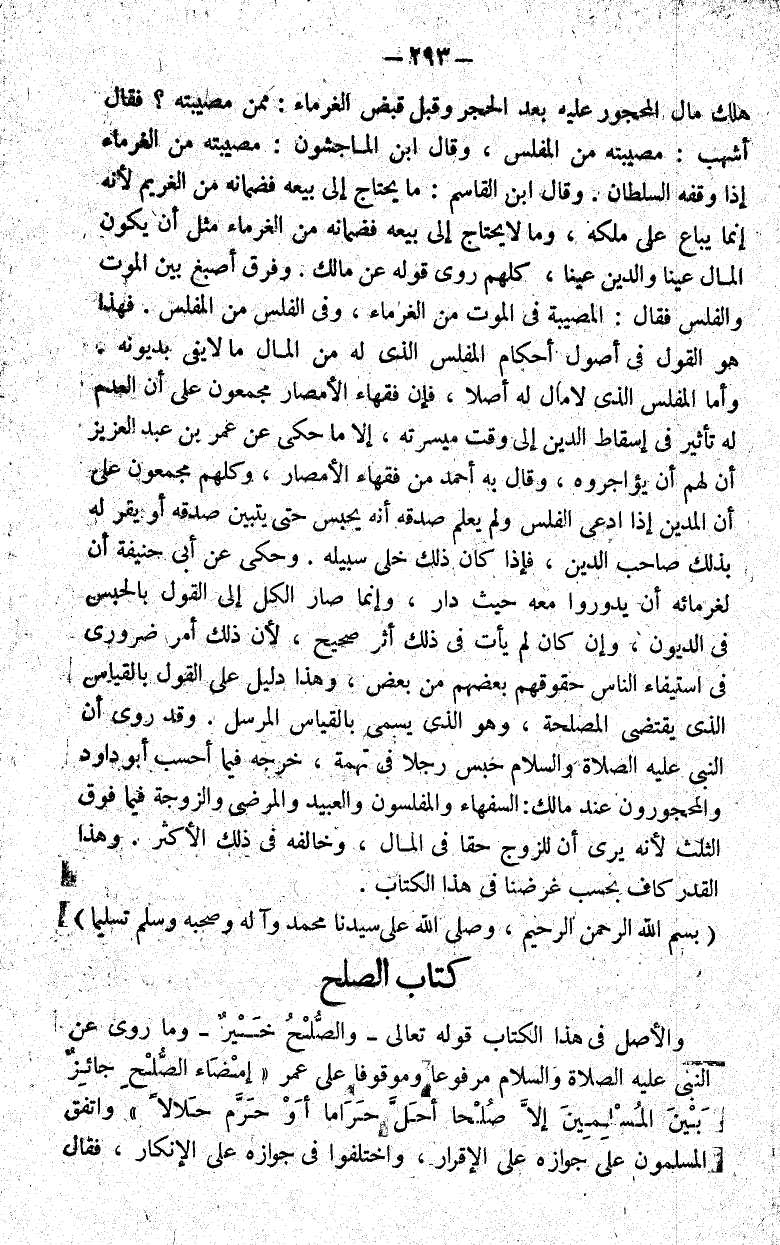 — ٢٩٣ —
هلك مال المحجور عليه بعد الحجر وقبل قبض الغرماء : ممن مصيبته ؟ فقال
أشهب : مصيبته من المفلس ، وقال ابن المـاجشون : مصيبته من الغرماء
إذا وقفه السلطان . وقال ابن القاسم : ما يحتاج إلى بيعه فضمانه من الغريم لأنه
إنما يباع على ملكه ، وما لايحتاج إلى بيعه فضمانه من الغرماء مثل أن يكون
المـال عينا والدين عينا ، كلهم روى قوله عن مالك . وفرق أصبغ بين الموت
والفلس فقال : المصيبة فى الموت من الغرماء ، وفى الفلس من المفلس . فهذا
هو القول فى أصول أحكام المفلس الذى له من المـال مالايفى بديونه .
وأما المفلس الذى لامال له أصلا ، فإن فقهاء الأمصار مجمعون على أن العدم
له تأثير فى إسقاط الدين إلى وقت ميسرته ، إلا ما حكى عن عمر بن عبد العزيز
أن لهم أن يؤاجروه ، وقال به أحمد من فقهاء الأمصار ، وكلهم مجمعون على
أن المدين إذا ادعى الفلس ولم يعلم صدقه أنه يحبس حتى يتبين صدقه أو يقر له
بذلك صاحب الدين ، فإذا كان ذلك خلى سبيله . وحكى عن أبى حنيفة أن
لغرمائه أن يدوروا معه حيث دار ، وإنما صار الكل إلى القول بالحبس
فى الديون ، وإن كان لم يأت فى ذلك أثر صحيح ، لأن ذلك أمر ضرورى
فى استيفاء الناس حقوقهم بعضهم من بعض ، وهذا دليل على القول بالقياس
الذى يقتضى المصلحة ، وهو الذى يسمى بالقياس المرسل . وقد روى أن
النبى عليه الصلاة والسلام حبس رجلا فى تهمة ، خرجه فيما أحسب أبو داود
والمحجورون عند مالك: السفهاء والمفلسون والعبيد والمرضى والزوجة فيما فوق
الثلث لأنه يرى أن للزوج حقا فى المـال ، وخالفه فى ذلك الأكثر . وهذا
القدر كاف بحسب غرضنا فى هذا الكتاب .
( بسم الله الرحمن الرحيم ، وصلى الله على سيدنا محمد وآله وصحبه وسلم تسليما )
كتاب الصلح
والأصل فى هذا الكتاب قوله تعالى ـ والصُّلْحُ خَـيْرٌ ـ وما روى عن
النبى عليه الصلاة والسلام مرفوعا وموقوفا على عمر « إمْضَاء الصُّلْحِ جائِزٌ
بَـيْنَ المُسْلِـمِـينَ إلاَّ صُلْحا أحَلَّ حَرَاما أوْ حَرَّم حَلالاً » واتفق
المسلمون على جوازه على الإقرار ، واختلفوا فى جوازه على الإنكار ، فقال